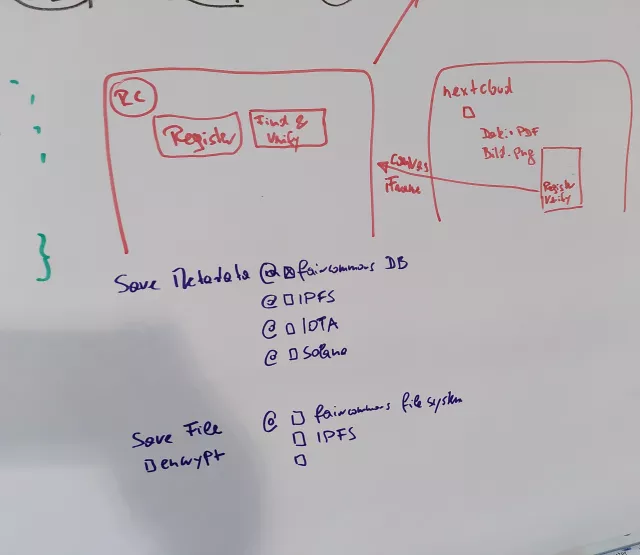 RC
Register
Find &
Verify
nextcloud
Datei.PDF
Bild.png
Register
Verify
iFrame
Save Metadata @ faircommons DB
@ IPFS
@ IOTA
@ Solana
Save File @ faircommons file system
encrypt IPFS